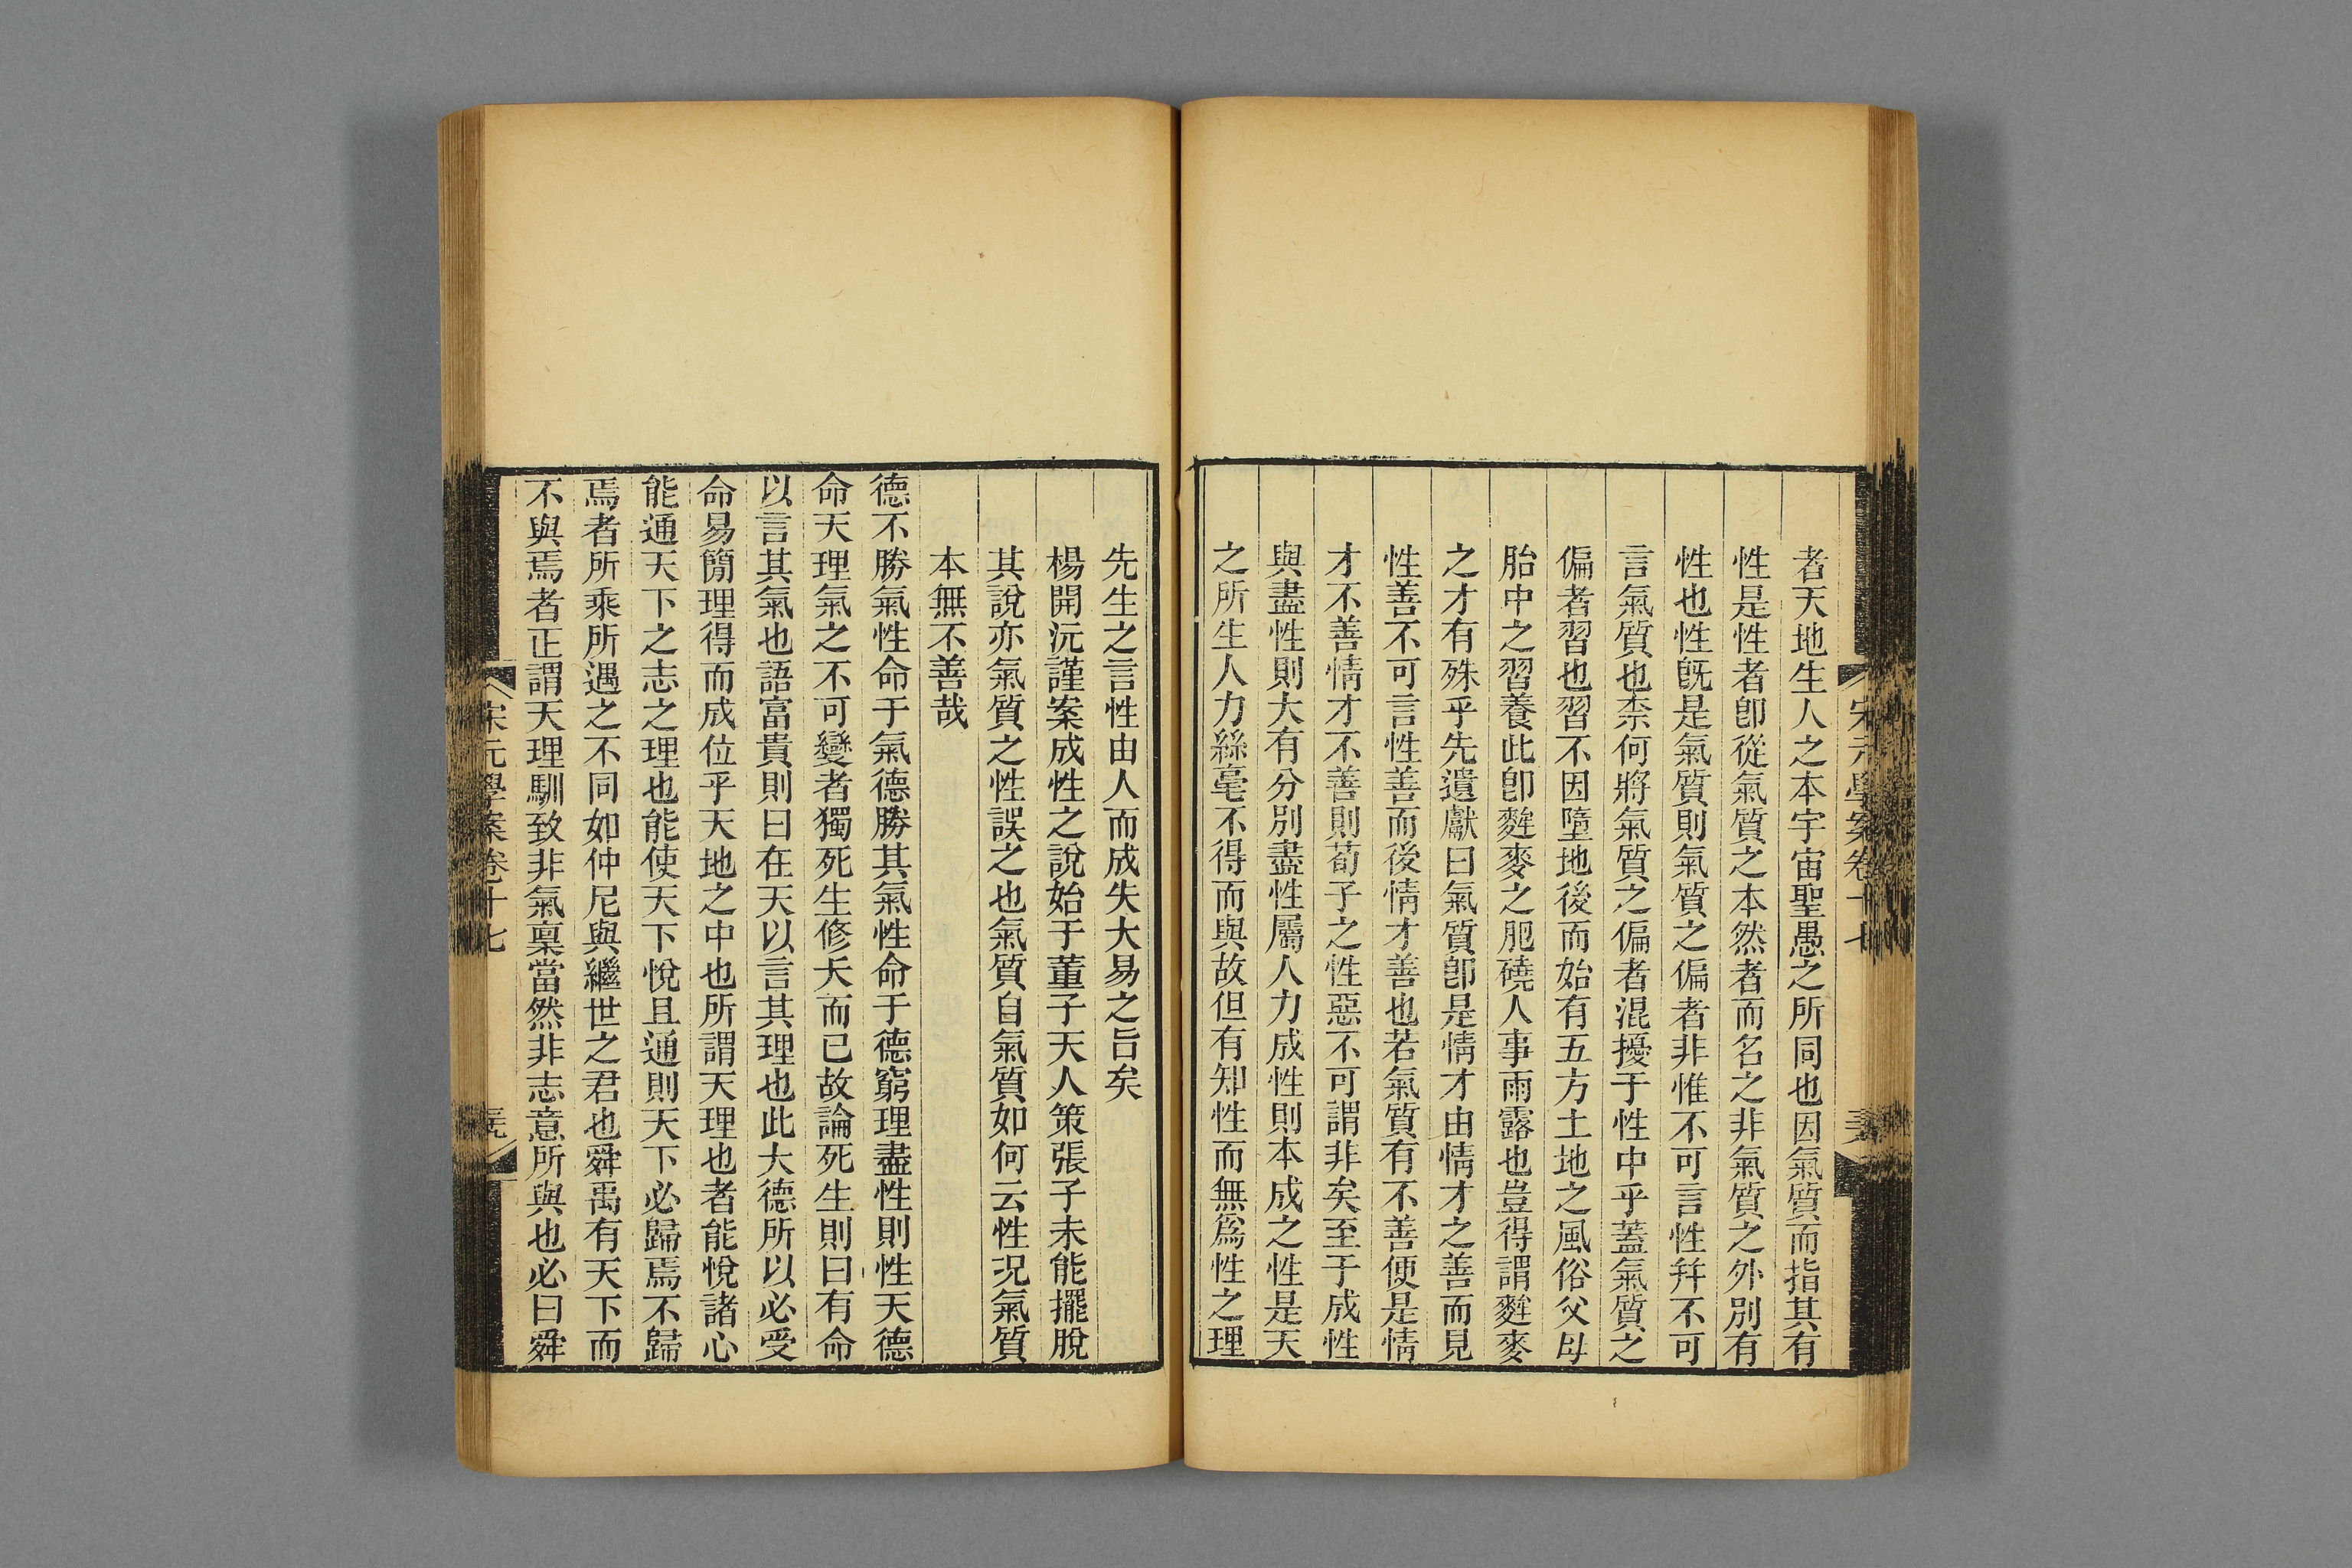 宋元學案卷十七
者天地生人之本宇宙聖愚之所同也因氣質而指其有
性是性者卽從氣質之本然者而名之非氣質之外別有
性也性旣是氣質則氣質之偏者非惟不可言性幷不可
言氣質也柰何將氣質之偏者混擾于性中乎蓋氣質之
偏者習也習不因墮地後而始有五方土地之風俗父母
胎中之習養此卽麰麥之肥磽人事雨露也豈得謂麰麥
之才有殊乎先遺獻曰氣質卽是情才由情才之善而見
性善不可言性善而後情才善也若氣質有不善便是情
才不善情才不善則荀子之性惡不可謂非矣至于成性
與盡性則大有分別盡性屬人力成性則本成之性是天
之所生人力絲毫不得而與故但有知性而無爲性之理
先生之言性由人而成失大易之旨矣
楊開沅謹案成性之說始于董子天人策張子未能擺脫
其說亦氣質之性誤之也氣質自氣質如何云性況氣質
本無不善哉
德不勝氣性命于氣德勝其氣性命于德窮理盡性則性天德
命天理氣之不可變者獨死生修夭而已故論死生則曰有命
以言其氣也語富貴則曰在天以言其理也此大德所以必受
命易簡理得而成位乎天地之中也所謂天理也者能悅諸心
能通天下之志之理也能使天下悅且通則天下必歸焉不歸
焉者所乘所遇之不同如仲尼與繼世之君也舜禹有天下而
不與焉者正謂天理馴致非氣稟當然非志意所與也必曰舜
宋元學案卷十七